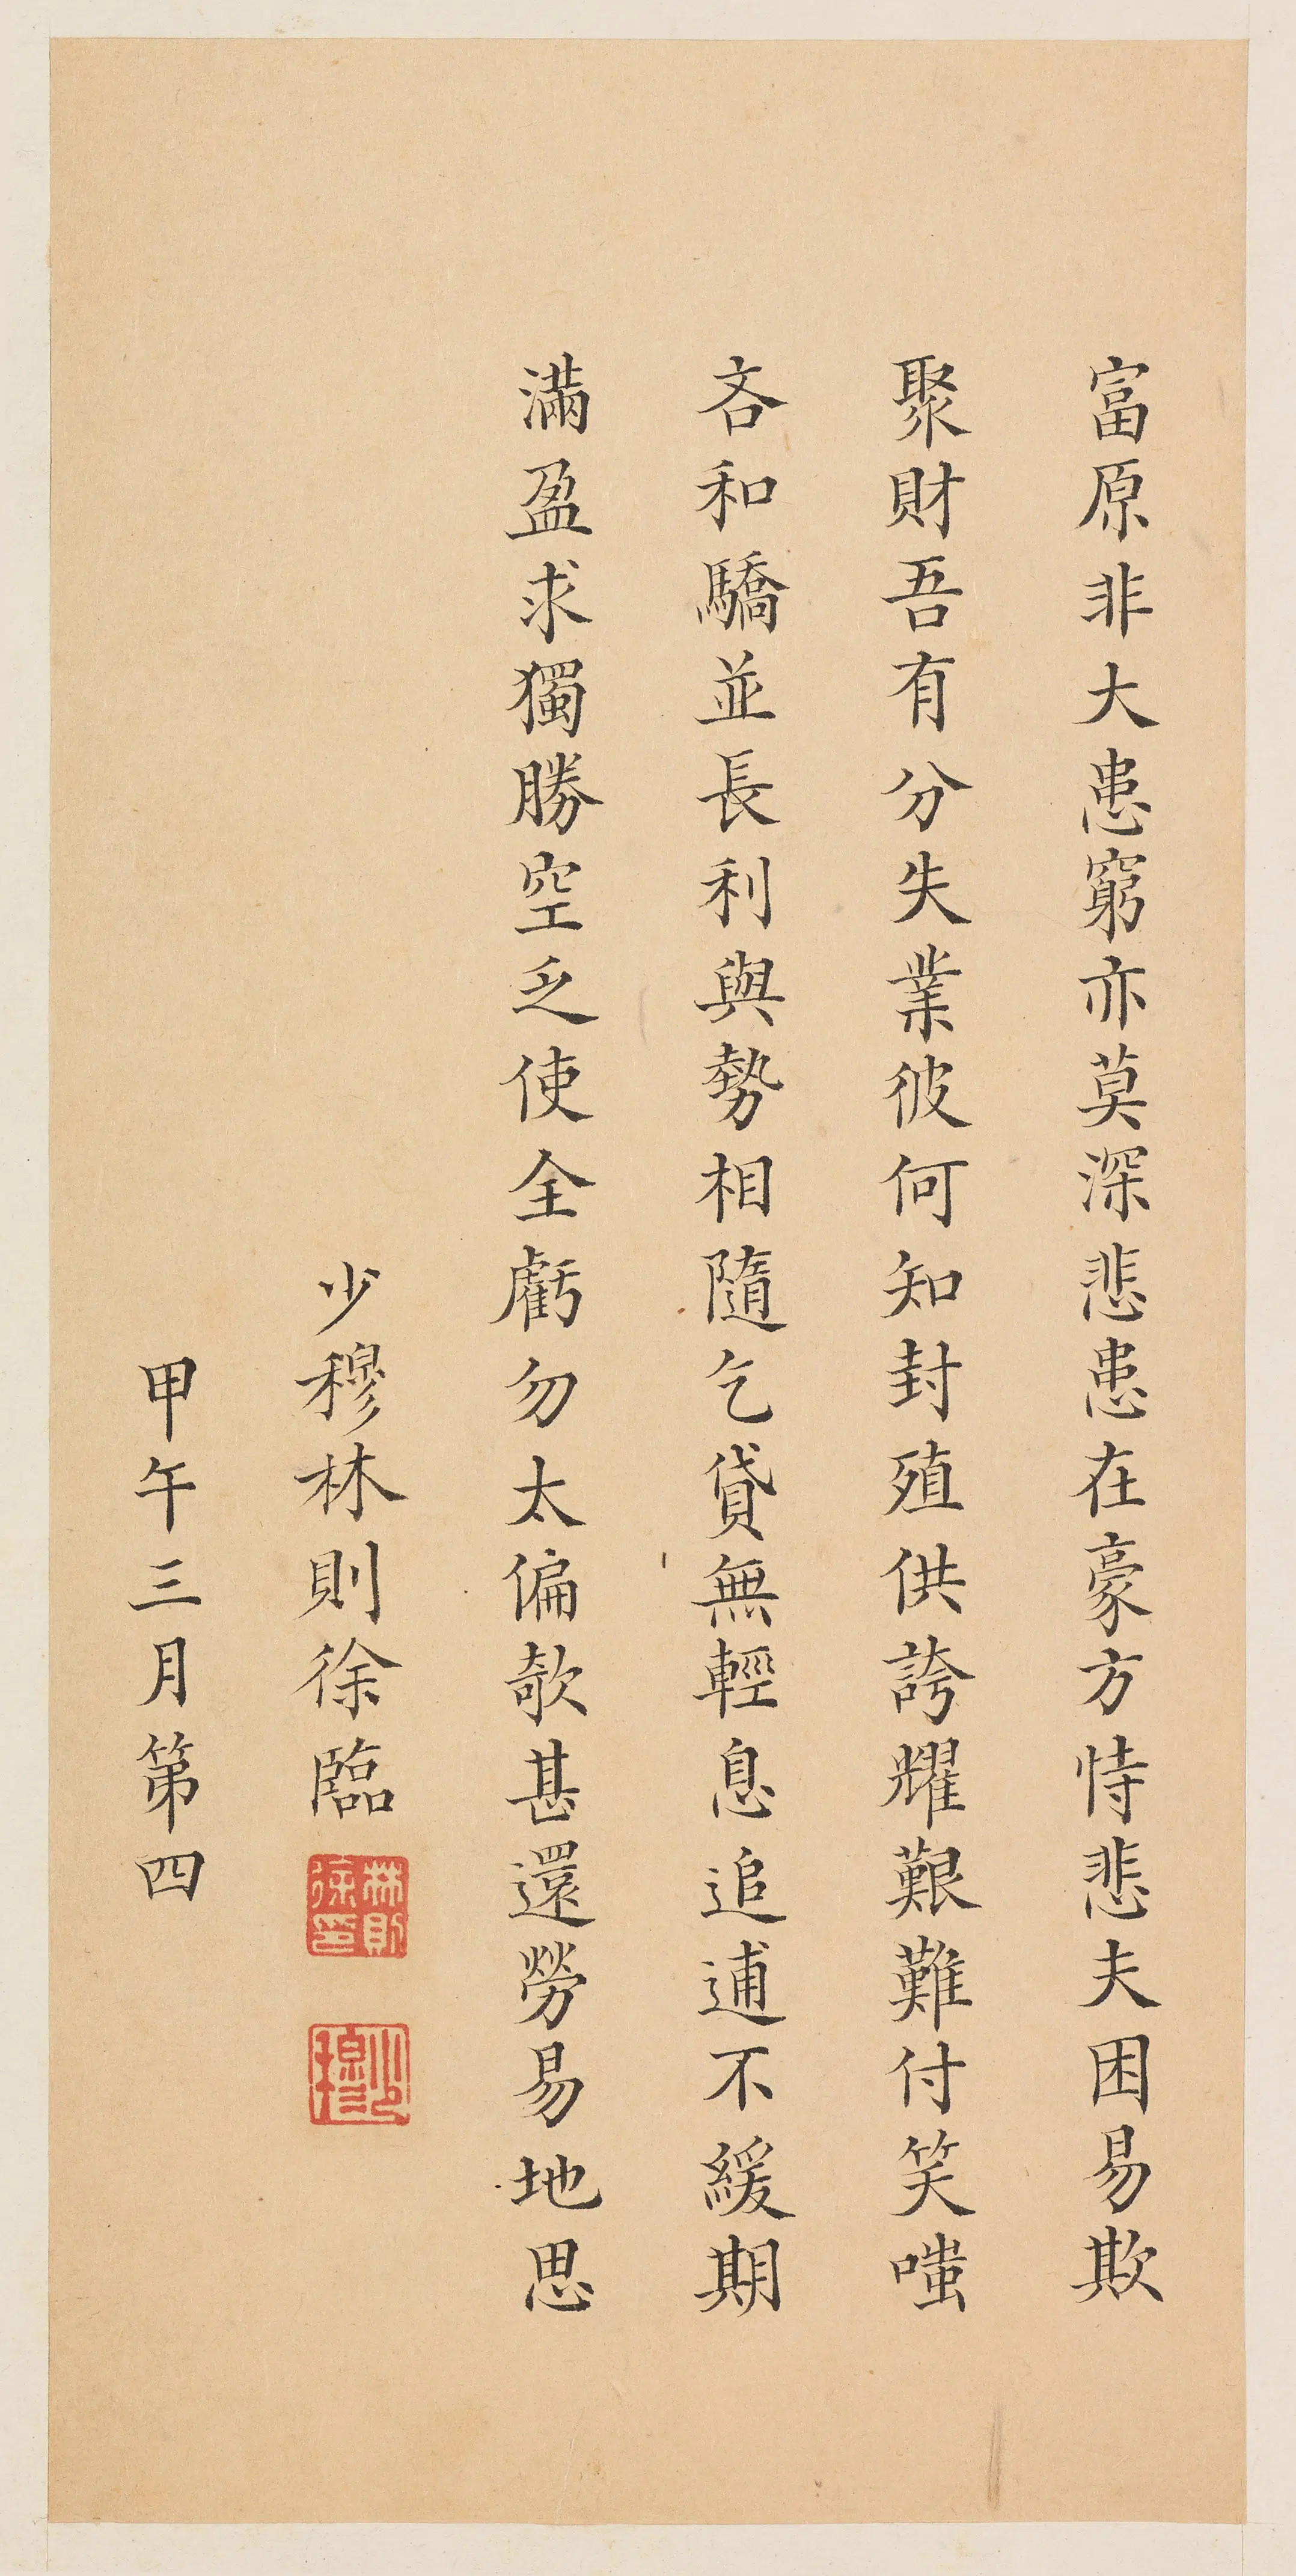 富原非大患窮亦莫深悲患在豪方恃悲夫困易欺
聚財吾有分失業彼何知封殖供誇耀艱難付笑嗤
吝和驕並長利與勢相隨乞貸無輕息追逋不緩期
滿盈求獨勝空乏使全虧勿太偏欹甚還勞易地思
少穆林則徐臨
林則徐印
少穆
甲午三月第四